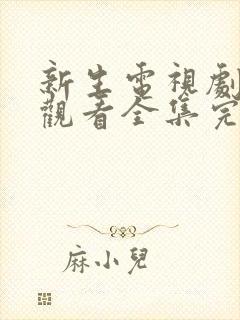 新生電視劇
觀看全集完
麻小兒